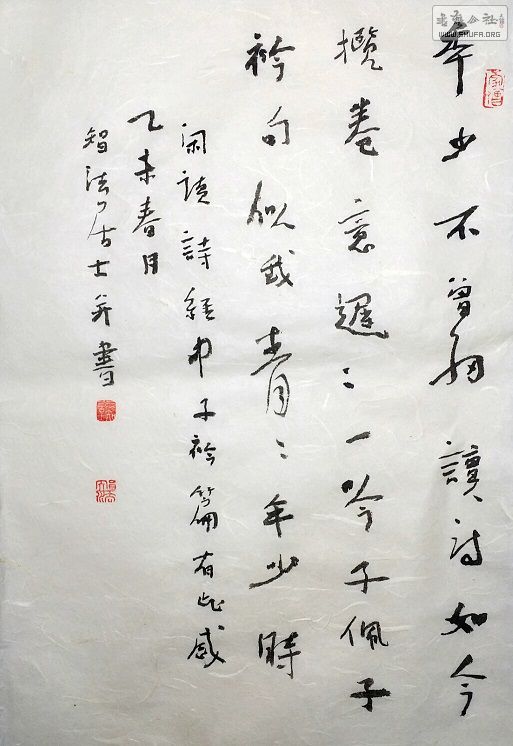 年少不曾細讀詩如今
攬卷意遲〻一吟子佩子
衿句似我青〻年少時
閑讀詩經中子衿篇有此感
乙未春月
智法居士并書
書法公社
WWW.SHUFA.ORG